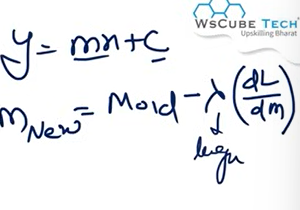 WsCube Tech
Upskilling Bharat
y = mx + c
m New = Mold - λ (dL/dm)